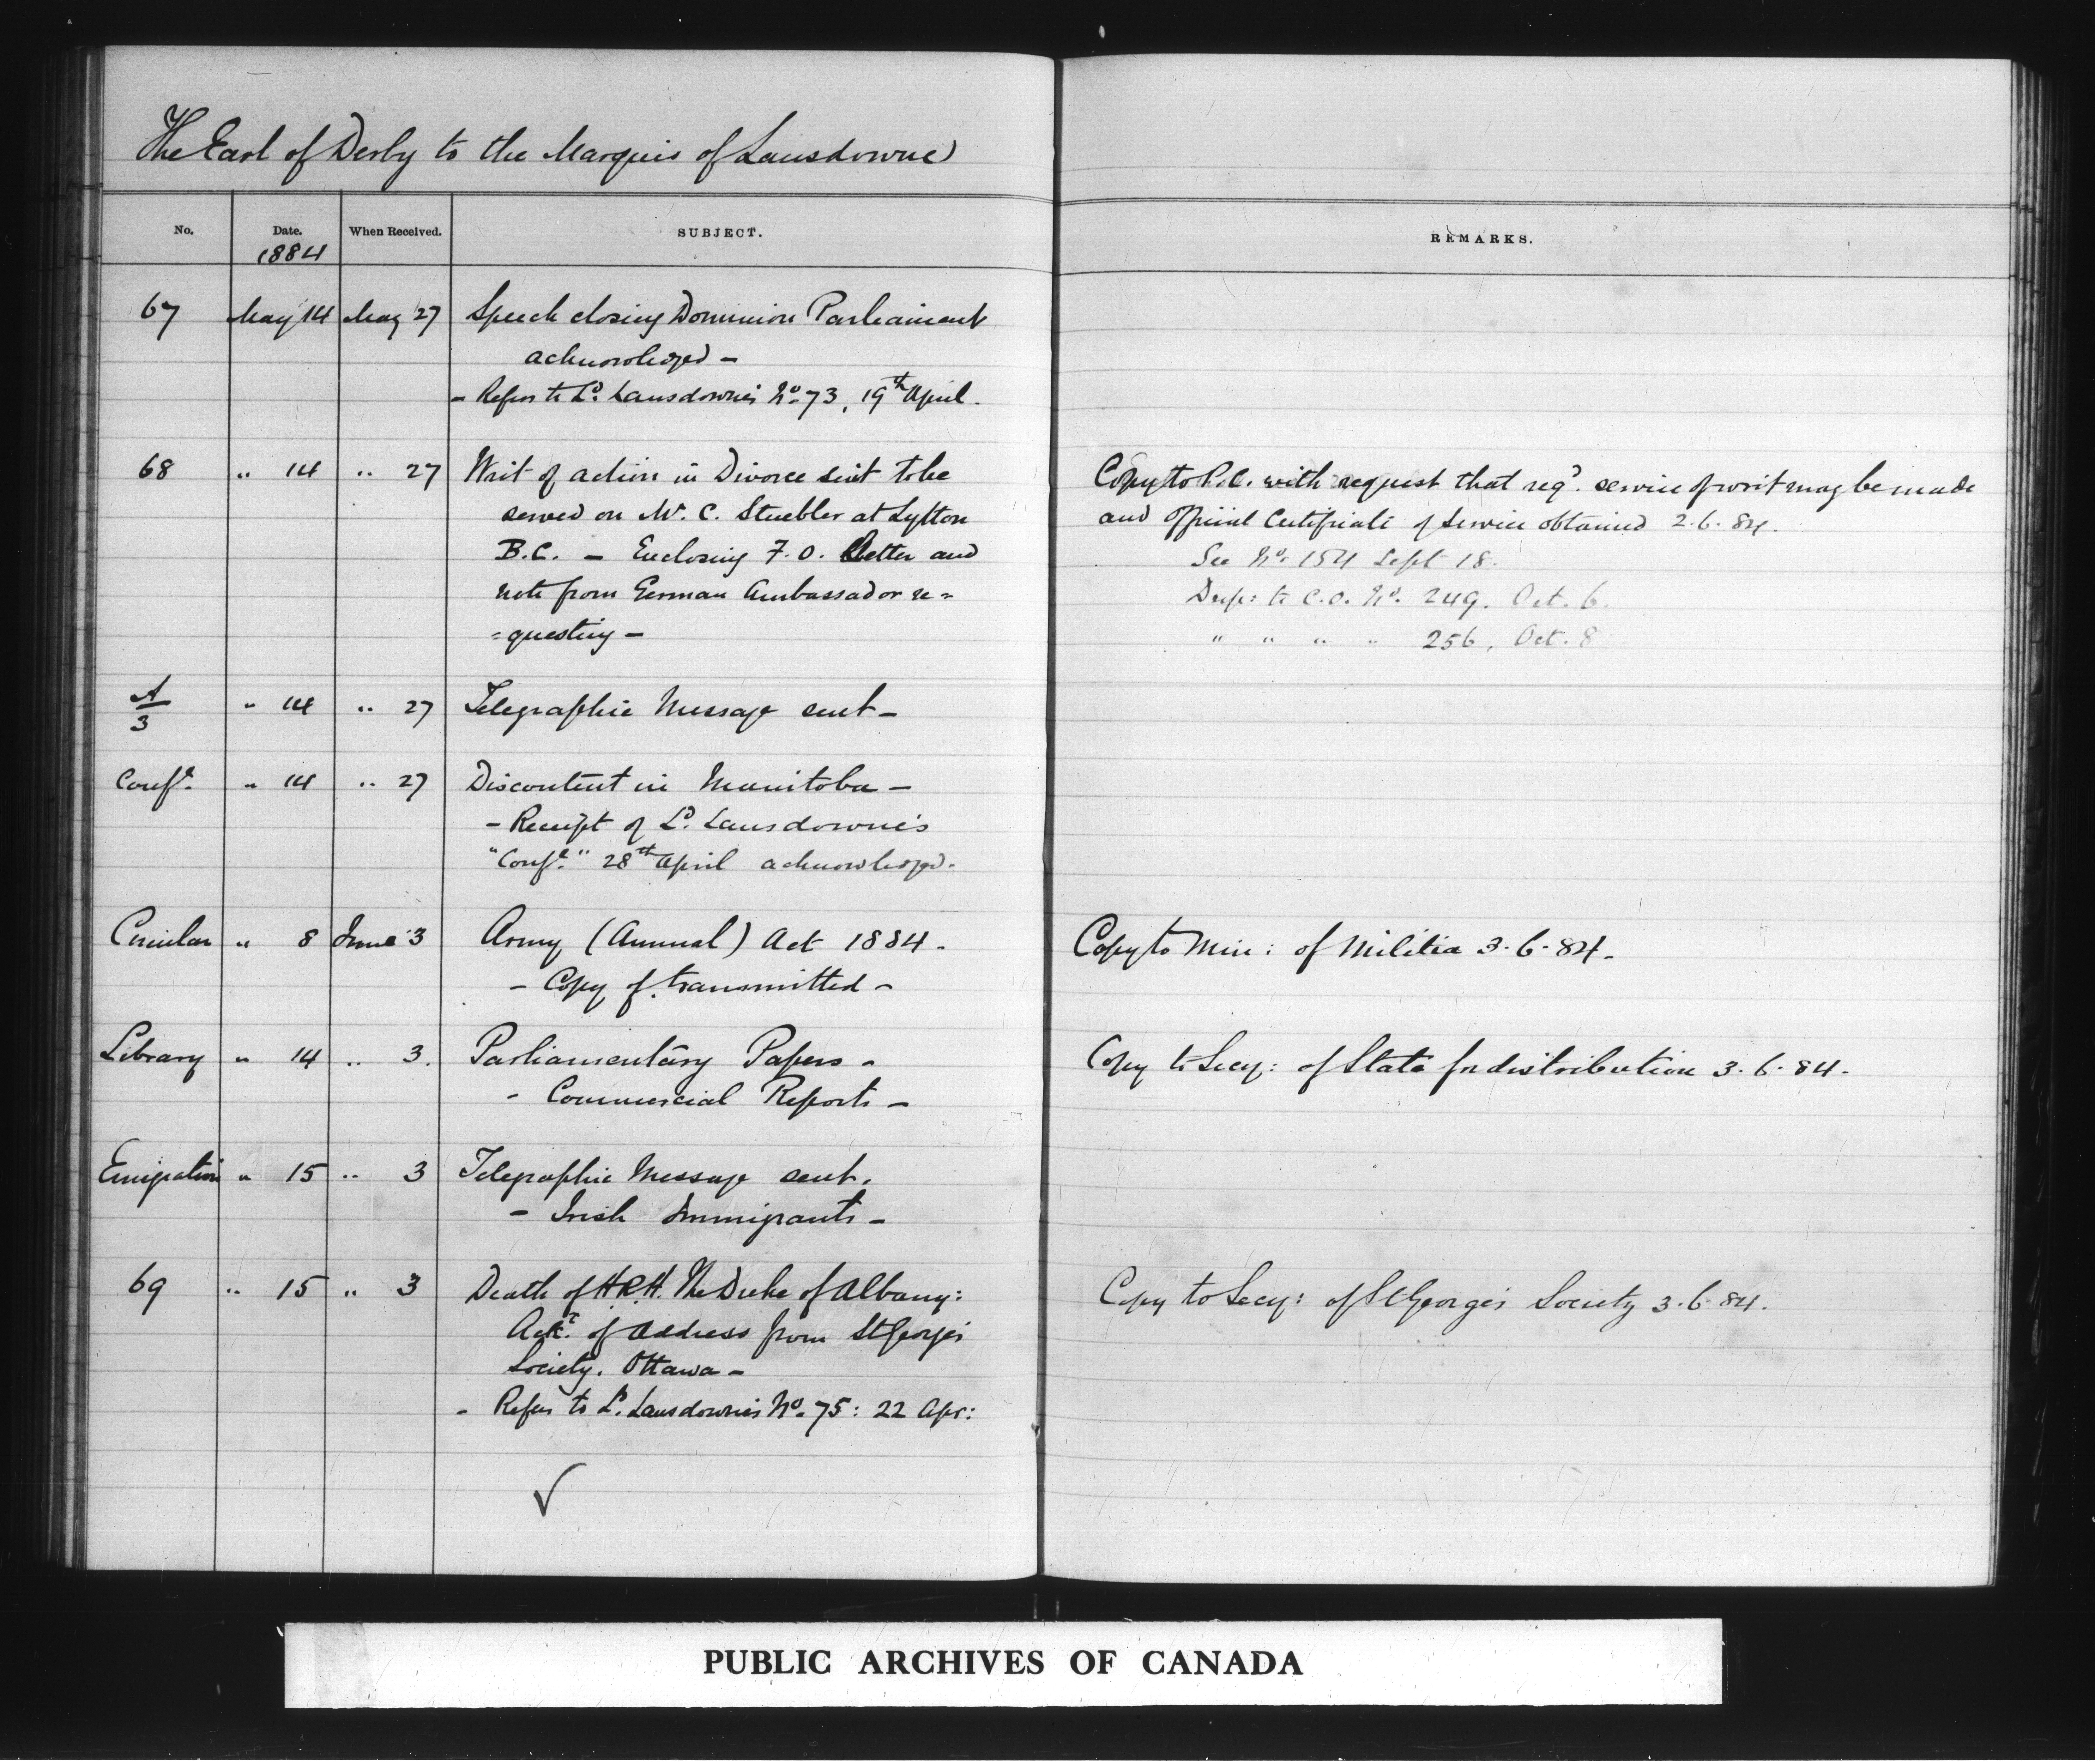 The Earl of Derby to the Marquis of Lansdowne
No. Date. When Received. SUBJECT. REMARKS.
1884
67 May 14 May 27 Speech closing Dominion Parliament
acknowledged –
– Refers to Ld. Lansdowne's No. 73, 19th April.
68 " 14 " 27 Writ of action in Divorce sent to be
served on W. C. Stuebler at Lytton
B.C. – Enclosing F.O. Letter and
note from German Ambassador re=
=questing –
Copy to P.C. with request that reqd. service of writ may be made
and official Certificate of service obtained 2.6.84.
See No. 154 Sept 18.
Desp: to C.O. No. 249. Oct. 6.
" " " " 256, Oct. 8
A/3 " 14 " 27 Telegraphic Message sent –
Confl. " 14 " 27 Discontent in Manitoba –
– Receipt of Ld. Lansdowne's
"Confl." 28th April acknowledged.
Circular " 8 June 3 Army (Annual) Act 1884. Copy to Min: of Militia 3.6.84.
– Copy of, transmitted –
Library " 14 " 3. Parliamentary Papers – Copy to Secy: of State for distribution 3.6.84.
– Commercial Reports –
Emigration " 15 " 3 Telegraphic Message sent.
– Irish Immigrants –
69 " 15 " 3 Death of H.R.H. The Duke of Albany: Copy to Secy: of St George's Society 3.6.84.
Ackt. of address from St George's
Society. Ottawa –
– Refers to Ld. Lansdowne's No. 75: 22 Apr:
PUBLIC ARCHIVES OF CANADA